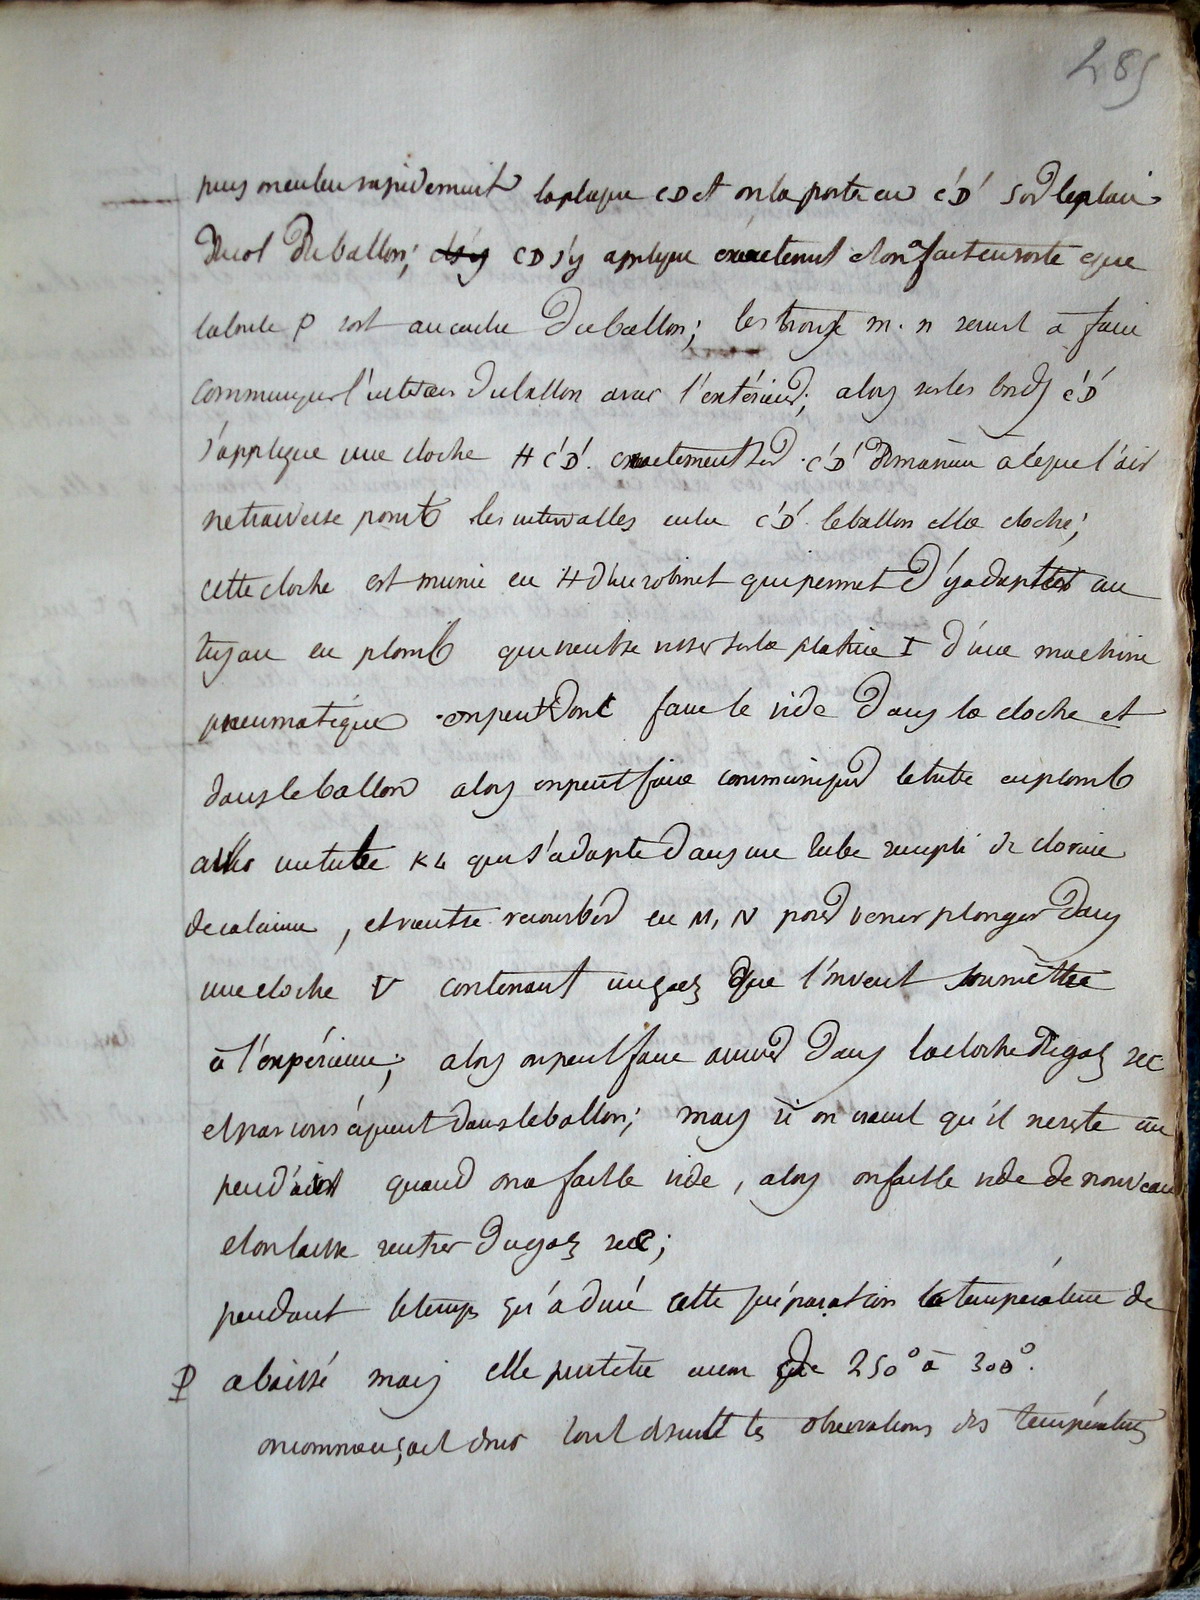 285
puis on enleve rapidement la plaque CD et on la porte en C'D' sur le plan
du col du ballon; d's'y CD s'y applique exactement et on a fait en sorte que
la boule P soit au centre du ballon; les trous m. n servent à faire
communiquer l'intérieur du ballon avec l'extérieur; alors sur les bords C'D'
s'applique une cloche H C'D'. exactement sur C'D' de manière à ce que l'air
ne traverse point les intervalles entre C'D' le ballon et la cloche;
cette cloche est munie en H d'un robinet qui permet d'y adapter un
tuyau en plomb qui vient se visser sur la platine I d'une machine
pneumatique on peut donc faire le vide dans la cloche et
dans le ballon alors on peut faire communiquer le tube en plomb
avec un tube KL qui s'adapte dans un tube rempli de clorure
de calcium, et vient se recourber en M, N pour venir plonger dans
une cloche V contenant un gaz que l'on veut soumettre
à l'expérience; alors on peut faire arriver dans la cloche du gaz sec
et par conséquent dans le ballon; mais si on craint qu'il ne reste un
peu d'air quand on a fait le vide, alors on fait le vide de nouveau
et on laisse rentrer du gaz sec;
pendant le temps qu'a duré cette préparation la température de
P abaissé mais elle peut être encore de 250° à 300°.
on commençait donc tout de suite les observations des températures